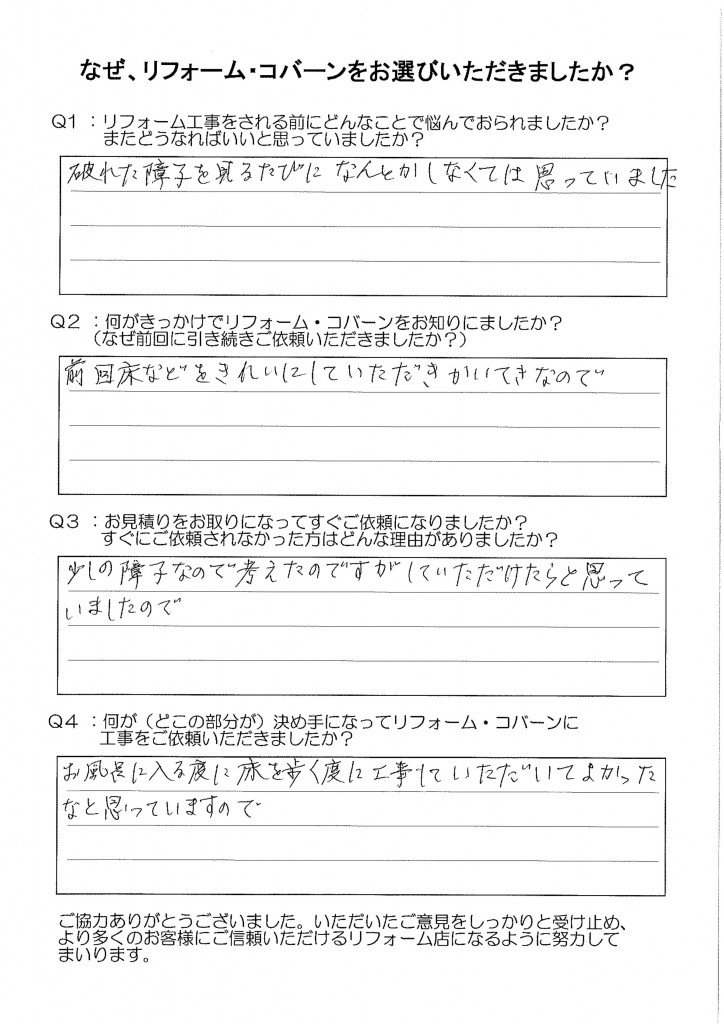 なぜ、リフォーム・コバーンをお選びいただきましたか？
Q1：リフォーム工事をされる前にどんなことで悩んでおられましたか？
またどうなればいいと思っていましたか？
破れた障子を見るたびになんとかしなくては思っていました
Q2：何がきっかけでリフォーム・コバーンをお知りにましたか？
（なぜ前回に引き続きご依頼いただきましたか？）
前回床などをきれいにしていただききかいてきなので
Q3：お見積りをお取りになってすぐご依頼になりましたか？
すぐにご依頼されなかった方はどんな理由がありましたか？
少しの障子なので考えたのですがしていただけたらと思って
いましたので
Q4：何が（どこの部分が）決め手になってリフォーム・コバーンに
工事をご依頼いただきましたか？
お風呂に入る度に床を歩く度に工事していただいてよかった
なと思っていますので
ご協力ありがとうございました。いただいたご意見をしっかりと受け止め、
より多くのお客様にご信頼いただけるリフォーム店になるように努力して
まいります。